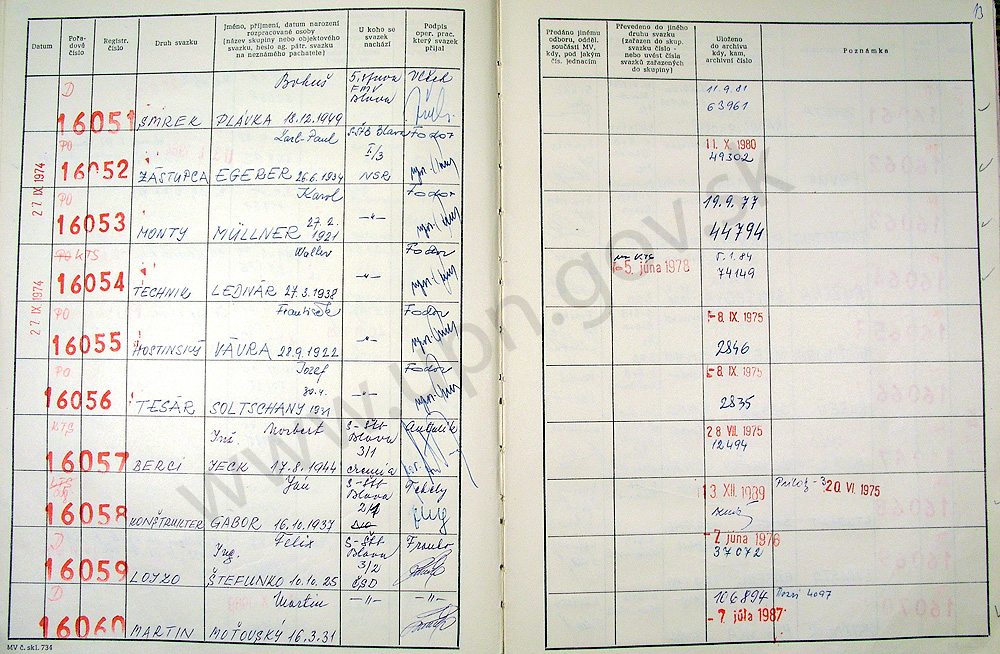 13
Datum
Pořadové číslo
Registr. číslo
Druh svazku
Jméno, příjmení, datum narození
rozpracované osoby
(název skupiny nebo objektového
svazku, heslo ag. pátr. svazku
na neznámého pachatele)
U koho se
svazek
nachází
Podpis
oper. prac.
který svazek
přijal
Předáno jinému
odboru, odděl.
součásti MV,
kdy, pod jakým
čís. jednacím
Převedeno do jiného
druhu svazku
(zařazen do skup.
svazku číslo -
nebo uvést čísla
svazků zařazených
do skupiny)
Uloženo
do archivu
kdy, kam,
archivní číslo
Poznámka
D
Bohuš
Vlček
FMV
Blava
11.9.81
16051 SMREK PLÁVKA 18.12.1949
63961
27 IX. 1974
PO
Karl-Paul
S-ŠtB Blava
Fodor
11. X. 1980
16052 ZÁSTUPCA EGERER 26.6.1934
I/3
NSR
49302
PO
Karol
Fodor
19.9.77
16053 MONTY MÜLLNER 27.2.
1921
-"-
44794
PO KTS
Walter
Fodor
-5. júna 1978
5.1.84
16054 TECHNIK LEDNÁR 27.3.1938
-"-
74149
27 IX. 1974
PO
František
Fodor
-8. IX. 1975
16055 HOSTINSKÝ VÁVRA 28.9.1922
-"-
2846
PO
Jozef
Fodor
-8. IX. 1975
16056 TESÁR SOLTSCHANY
-"-
2835
KTS
Ing. Norbert
S-ŠtB
Blava
3/1
28 VII. 1975
16057 BERCI JECK 17.8.1944
12494
Ján
S-ŠtB
Blava
13. XII. 1989
20. VI. 1975
16058 KONŠTRUKTER GÁBOR 16.10.1937
2/1
D
Ing. Felix
S-ŠtB
Blava
3/2
-2 júna 1976
16059 LOJZO ŠTEFUNKO 10.10.25
ČSD
37072
D
Martin
-"-
-"-
106894
4097
16060 MARTIN MOŤOVSKÝ 16.3.31
-7 júla 1987
MV č. skl. 734
www.upn.gov.sk